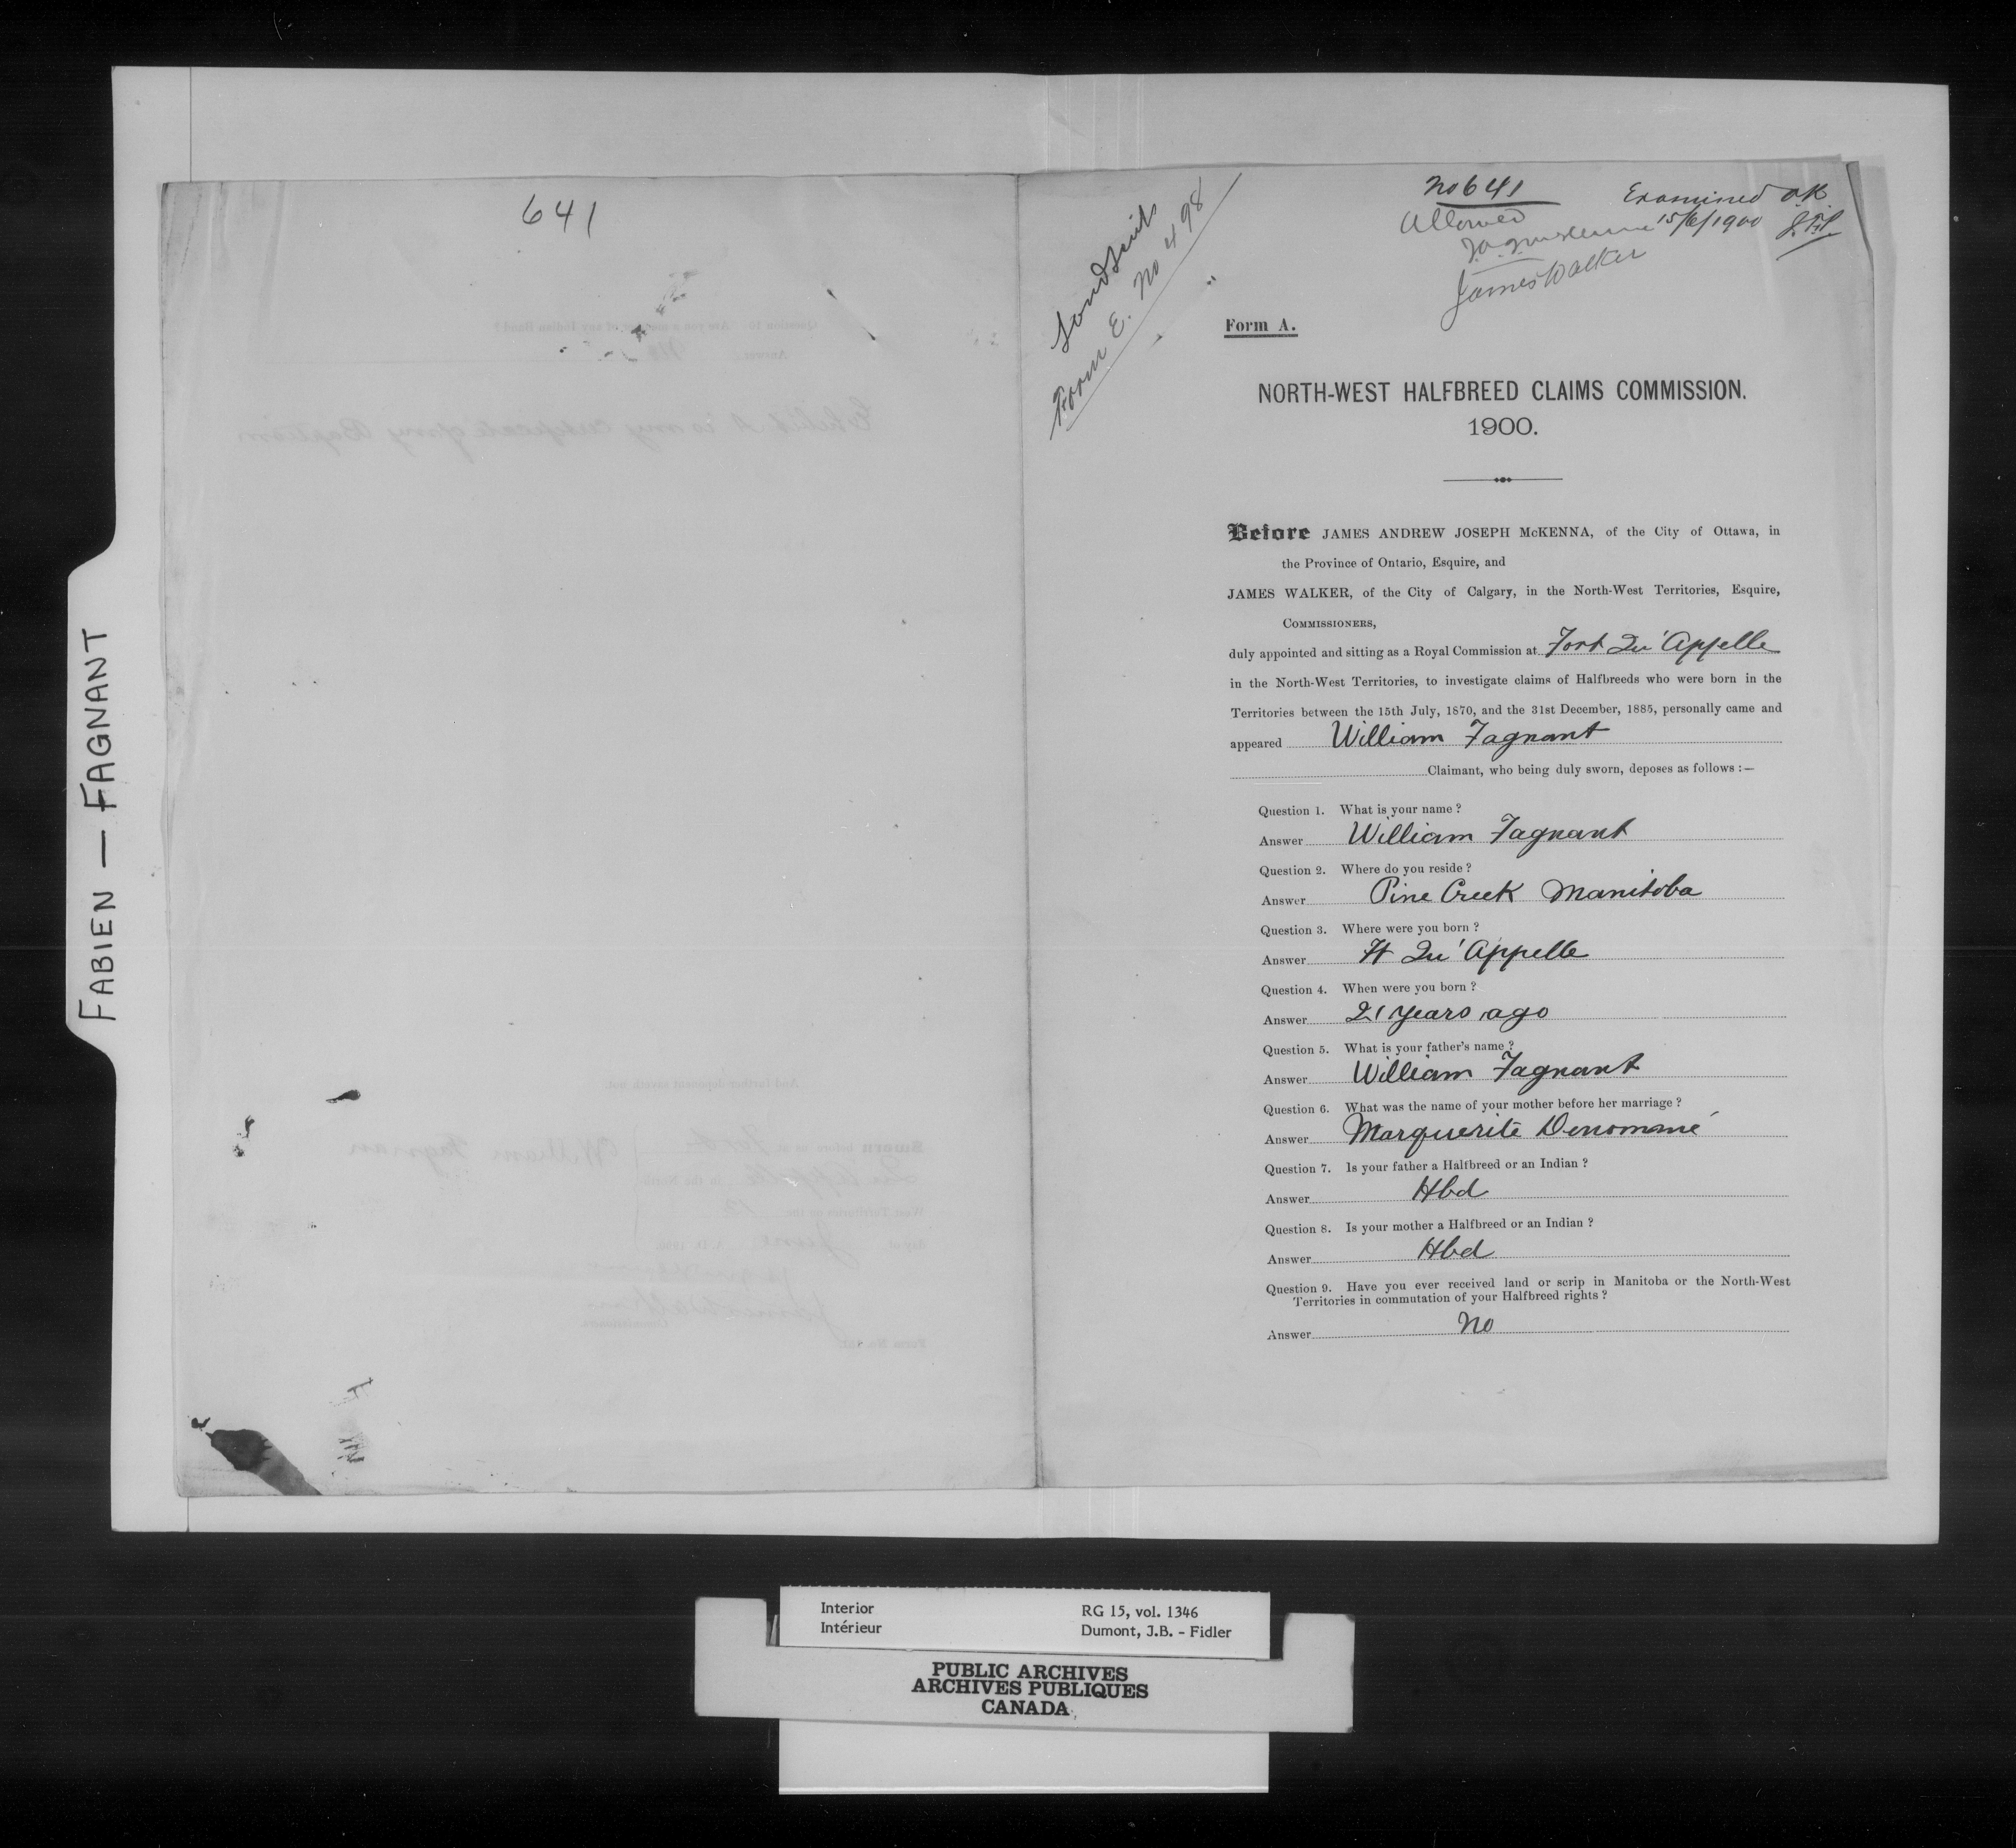 FABIEN — FAGNANT
641
Land Scrip
Form E. No 498
No 641
Allowed
James Walker
Examined O.K.
15/6/1900
Form A.
NORTH-WEST HALFBREED CLAIMS COMMISSION.
1900.
Before JAMES ANDREW JOSEPH McKENNA, of the City of Ottawa, in
the Province of Ontario, Esquire, and
JAMES WALKER, of the City of Calgary, in the North-West Territories, Esquire,
COMMISSIONERS,
duly appointed and sitting as a Royal Commission at Fort Qu'Appelle
in the North-West Territories, to investigate claims of Halfbreeds who were born in the
Territories between the 15th July, 1870, and the 31st December, 1885, personally came and
appeared William Fagnant
Claimant, who being duly sworn, deposes as follows :—
Question 1. What is your name ?
Answer William Fagnant
Question 2. Where do you reside ?
Answer Pine Creek Manitoba
Question 3. Where were you born ?
Answer Ft Qu'Appelle
Question 4. When were you born ?
Answer 21 years ago
Question 5. What is your father's name ?
Answer William Fagnant
Question 6. What was the name of your mother before her marriage ?
Answer Marguerite Denommé
Question 7. Is your father a Halfbreed or an Indian ?
Answer Hbd
Question 8. Is your mother a Halfbreed or an Indian ?
Answer Hbd
Question 9. Have you ever received land or scrip in Manitoba or the North-West
Territories in commutation of your Halfbreed rights ?
Answer No
Interior
Intérieur
RG 15, vol. 1346
Dumont, J.B. - Fidler
PUBLIC ARCHIVES
ARCHIVES PUBLIQUES
CANADA